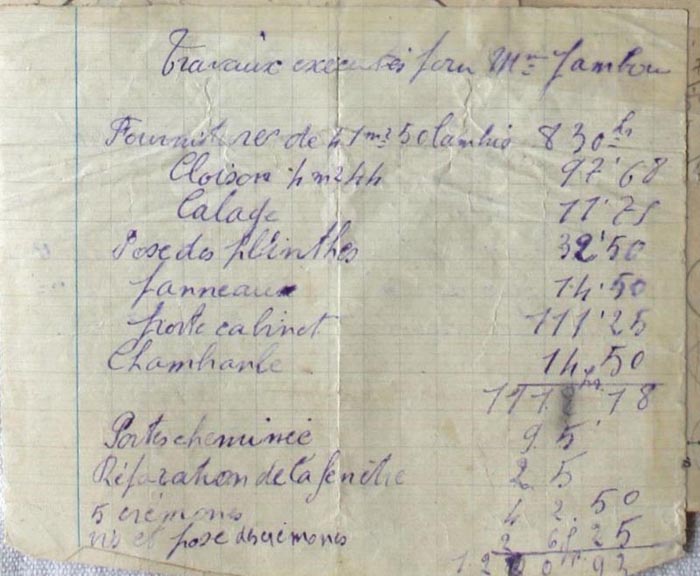 Travaux executés pour Mme Jambou
Fournitures de 41 m2 50 lambris 830 frs
Cloison 4 m2 44 97'68
Calage 11'75
Pose des plinthes 32'50
panneaux 14.50
porte cabinet 111'25
Chambanle 14,50
18
Portes cheminée 95'
Réparation de la fenêtre 25
5 crémones 42.50
et pose des crémones 26f 25
93